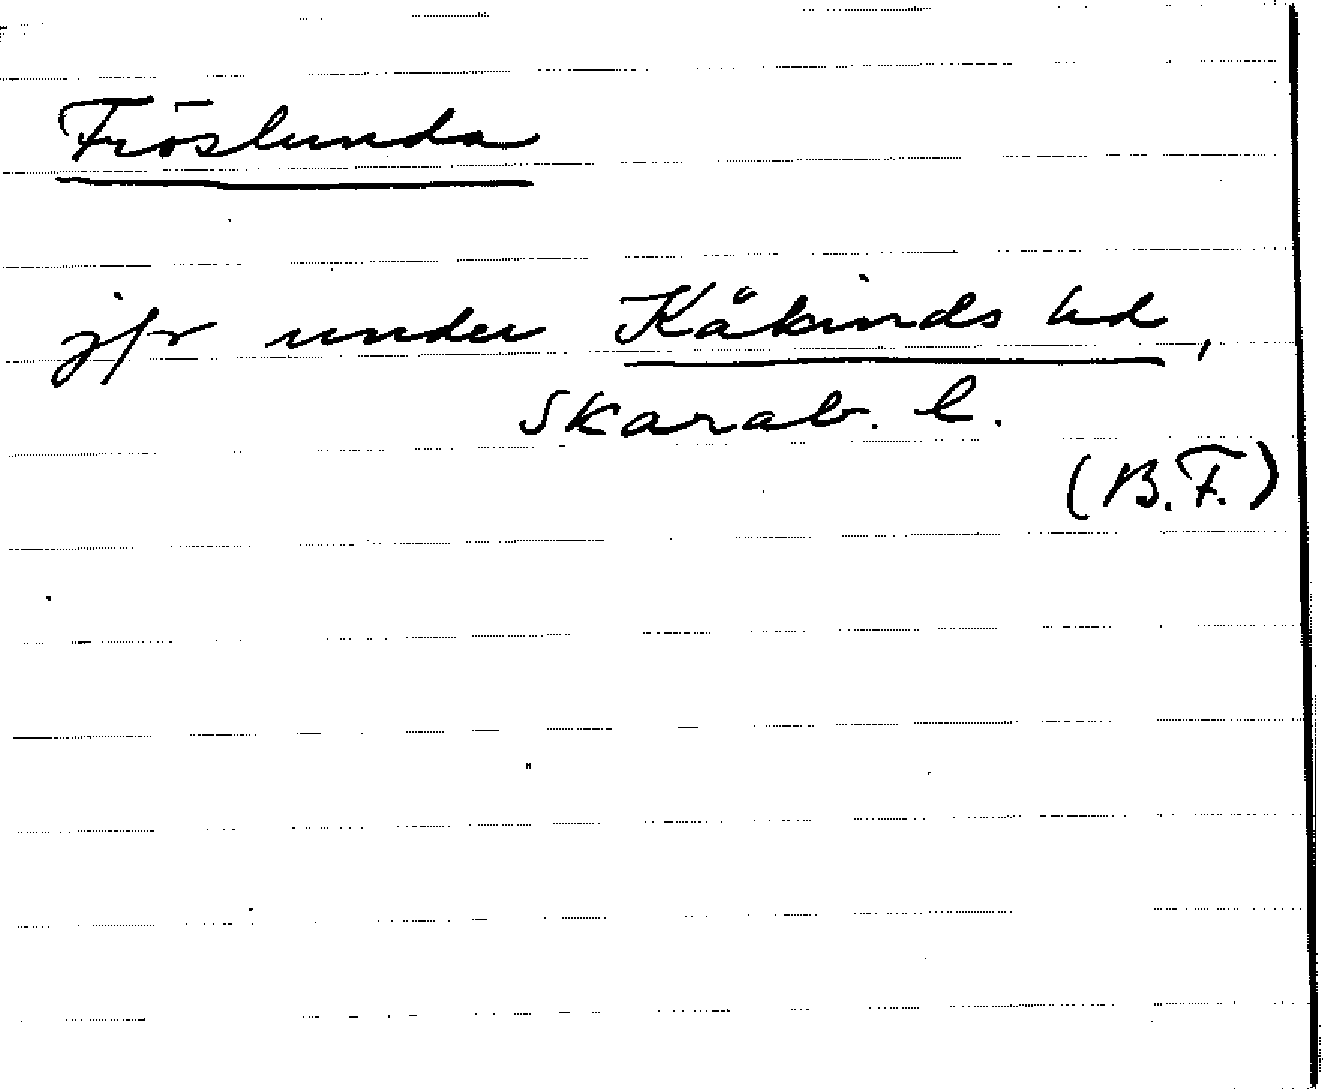 Fröslunda
jfr under Kåkinds hd,
Skarab. l.
(B.F.)